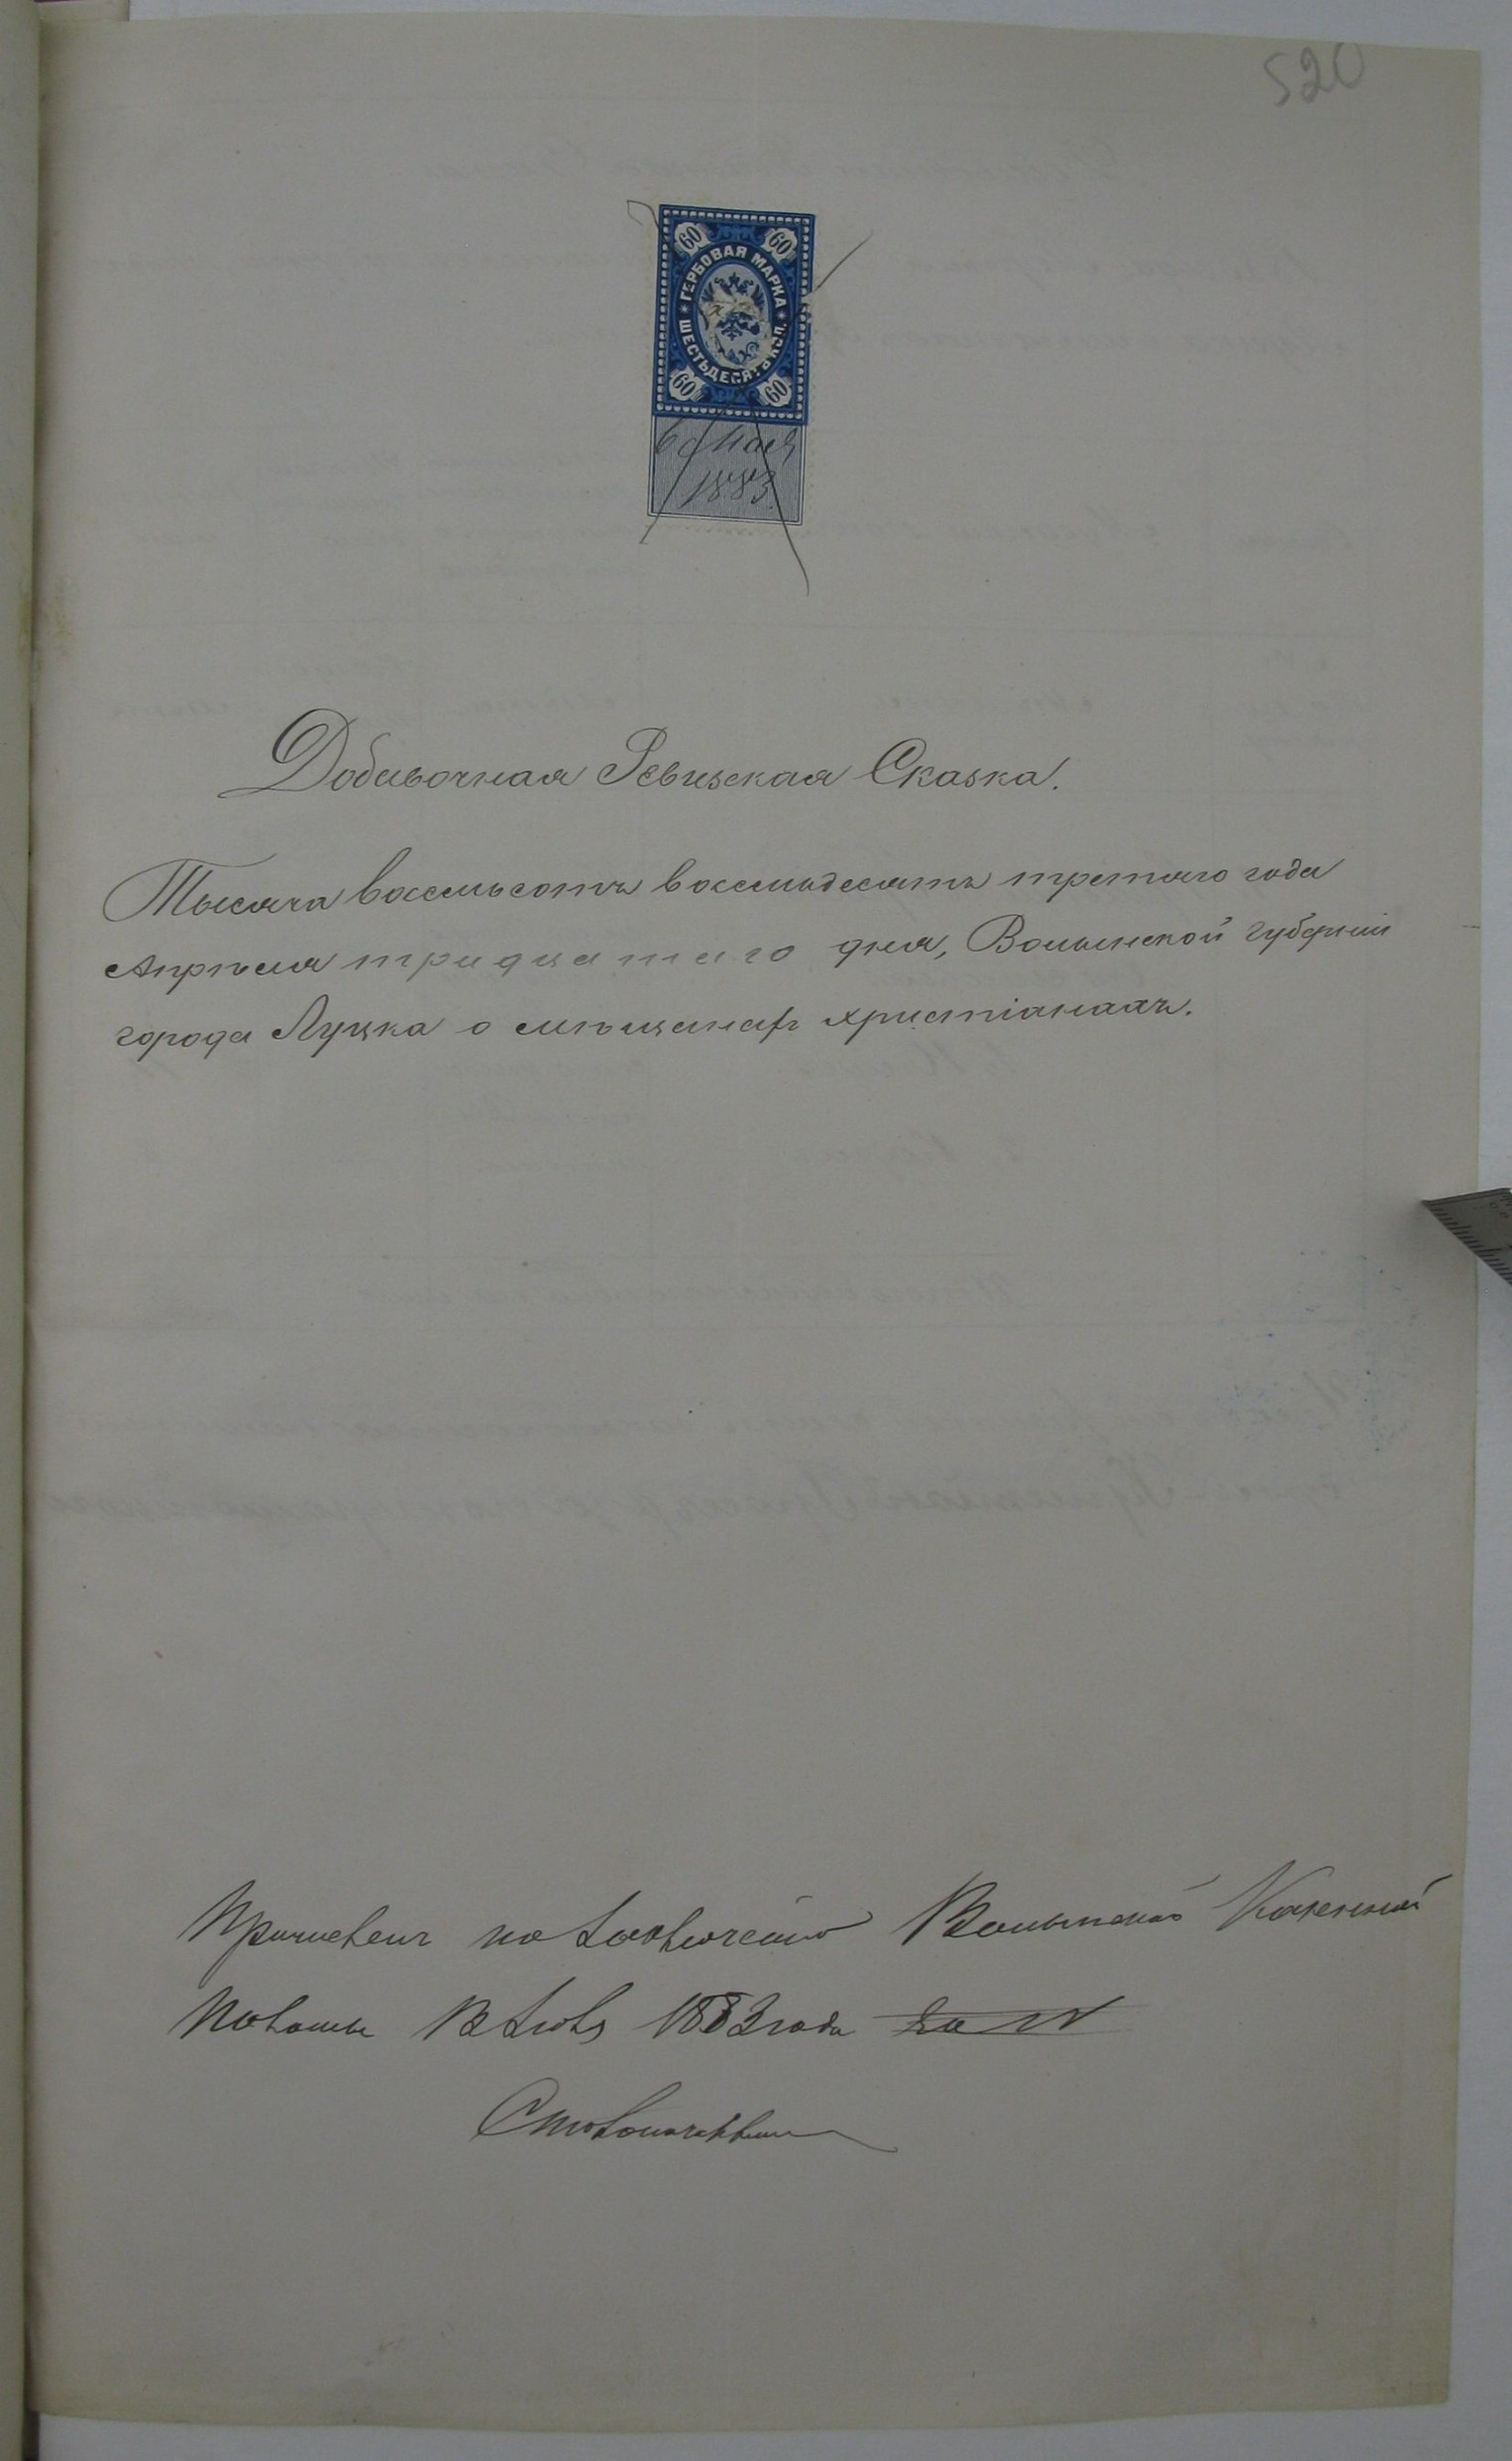 520
60 60
ГЕРБОВАЯ МАРКА
ШЕСТЬДЕСЯТЬ КОП.
60 60
6 Мая
1883
Добавочная Ревизская Сказка.
Тысяча восемьсотъ восемьдесятъ третьяго года
Апрѣля тридцатаго дня, Волынской губерніи
города Луцка о мѣщанахъ христіанахъ.
Причисленъ по Волынской Казенной
Палаты 1883 года за №
Столоначальникъ